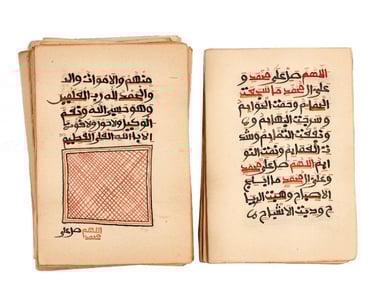 منهم والاموات وال
والحمد لله رب العلمين
وهو حسبي الله ونعم
الوكيل ولا حول ولا قوة
الا بالله العلي العظيم
اللهم صل على
محمد
اللهم صل على محمد و
على ال محمد ما سجعت
الحمايم وحمت الحوايم
و سرحت البهايم و
نفعت التمايم وشد
ت العمايم ونمت النو
ايم اللهم صل على محمد
وعلى ال محمد ما ابلج
الاصباح وهبت الريا
ح ودبت الاشباح